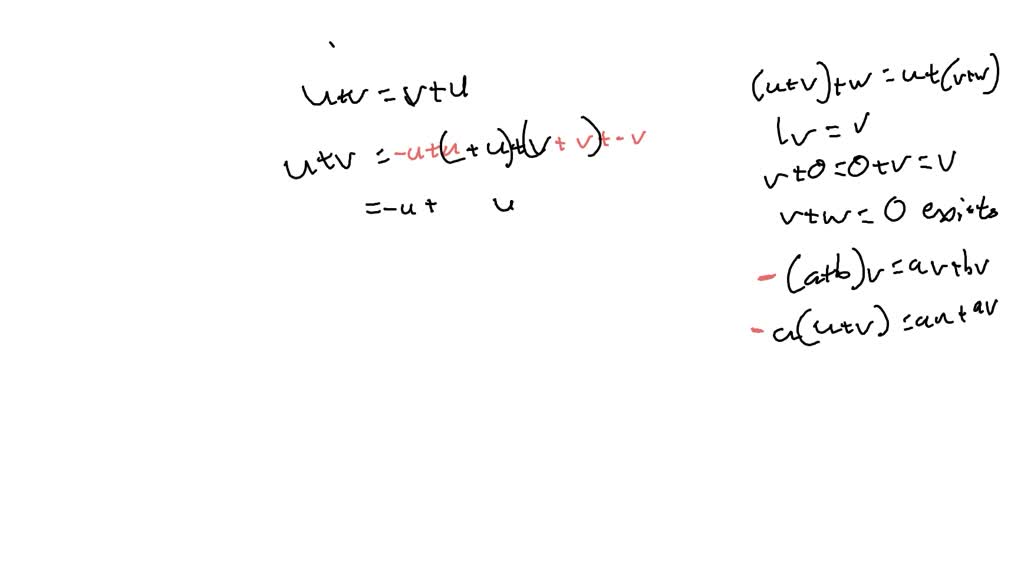 u+v = v+u
u+v = -u+(u+u)+(v+v)+-v
= -u + u
(u+v)+w = u+(v+w)
1v = v
v+0=0+v=v
v+w=0 exists
- (a+b)v = av+bv
- a(u+v) = au+av